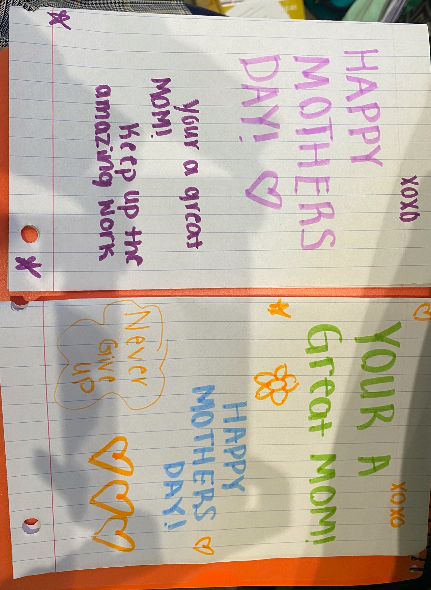 XOXO
HAPPY
MOTHERS
DAY! ♡
Your a great
MOM!
Keep up the
amazing work
XOXO
YOUR A
Great MOM!
HAPPY
MOTHERS
DAY!
Never
Give
up